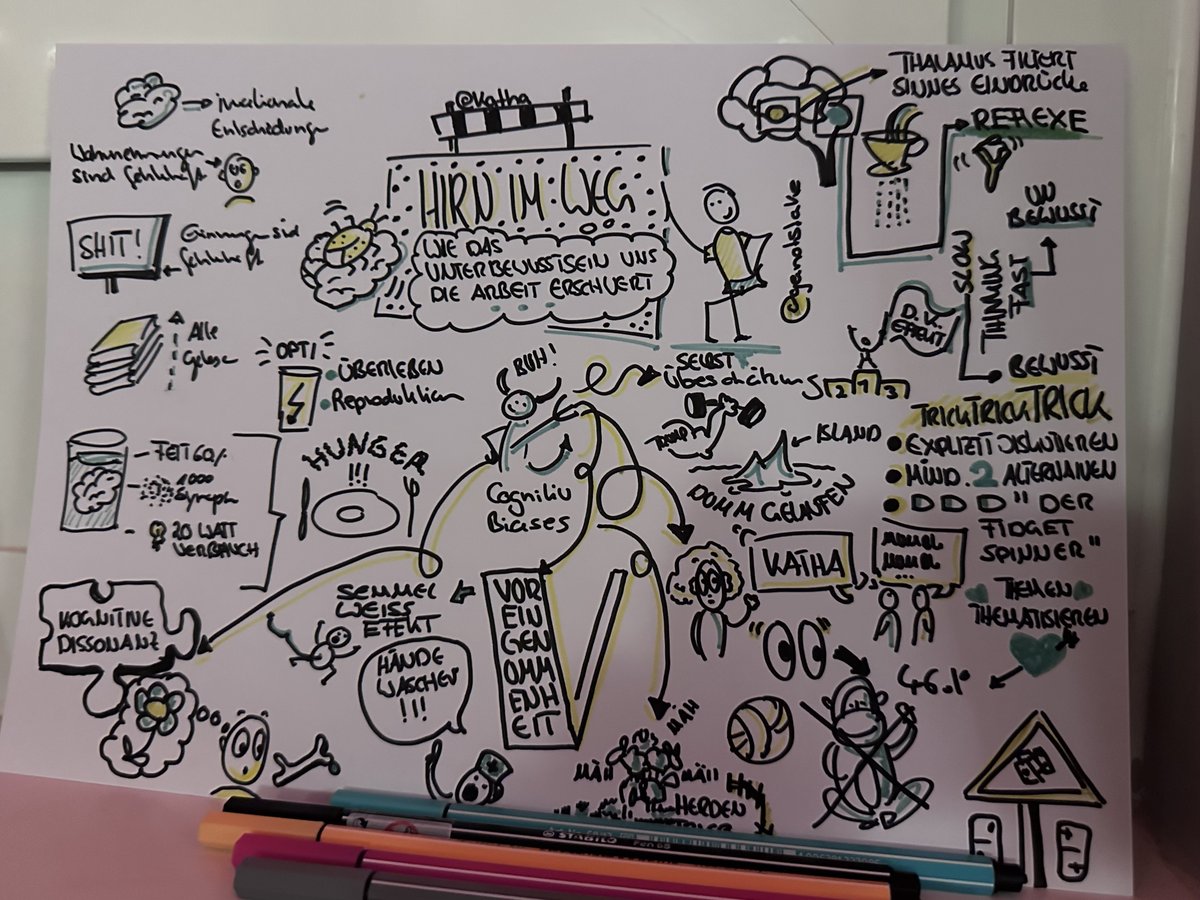 @Katha
HIRN IM WEG
WIE DAS
UNTERBEWUSSTSEIN UNS
DIE ARBEIT ERSCHWERT
irrationale
Entscheidungen
Wahrnehmungen
sind fehlerhaft
SHIT!
Erinnerungen sind
fehlerhaft
Alle
Gelesen
OPTI
ÜBERLEBEN
Reproduktion
FETT 60%
1000
20 WATT
VERBRAUCH
HUNGER
!!!
BUH!
Cognitiv
Biases
THALAMUS FILTERT
SINNES EINDRÜCKE
REFLEXE
UN
BEWUSST
SLOW
THINKING
FAST
BEWUSST
D.K.
EFFEKT
2 1 3
SELBST
Überschätzung
TRUMP
ISLAND
DUMM GELAUFEN
TRICKTRICKTRICK
EXPLIZIT DISKUTIEREN
MIND. 2 ALTERNATIVEN
D D D " DER
FIDGET
SPINNER"
THEMEN
THEMATISIEREN
KATHA
46%
KOGNITIVE
DISSONANZ
SEMMEL
WEISS
EFFEKT
HÄNDE
WASCHEN
!!!
VOR
EIN
GEN
OMM
ENH
EIT
MÄH
MÄH
MÄH
HERDEN